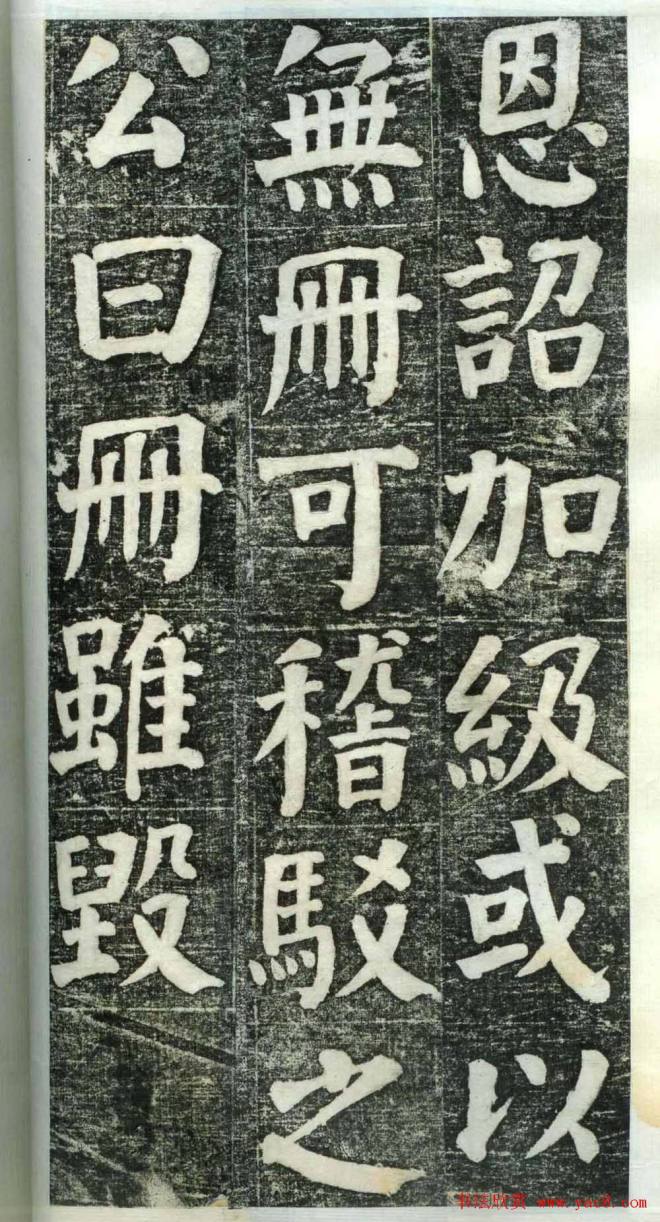 恩詔加級或以
無冊可稽駁之
公曰冊雖毀
书法欣赏 www.yac8.com